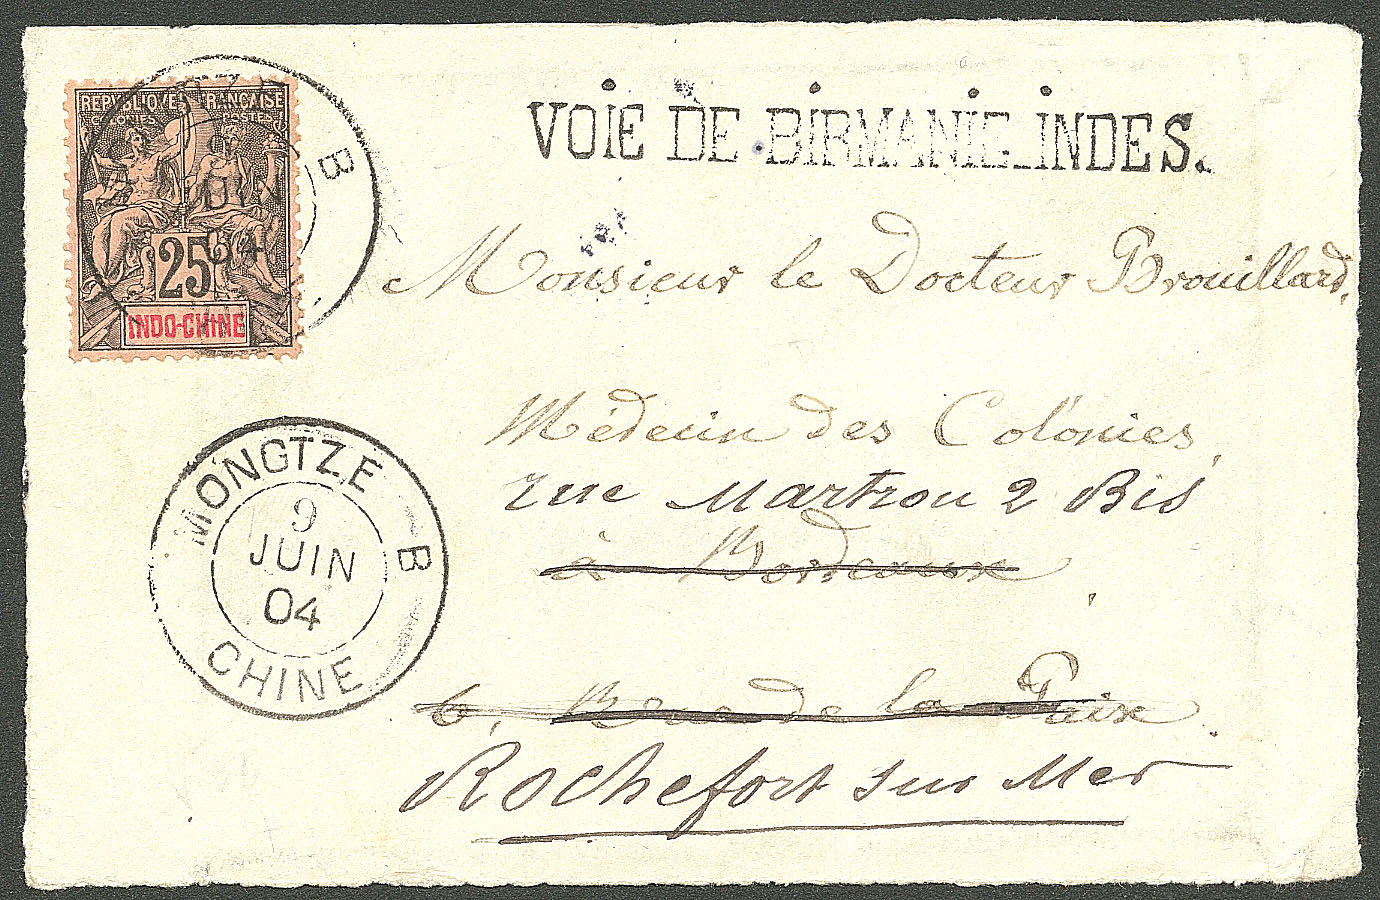 REPUBLIQUE FRANÇAISE
COLONIES POSTES
25
INDO-CHINE
B
04
VOIE DE BIRMANIE_INDES.
Monsieur le Docteur Brouillard,
Médecin des Colonies,
rue Martrou 2 Bis
à Bordeaux
6, Rue de la Paix.
Rochefort sur Mer
MONGTZE B
9
JUIN
04
CHINE